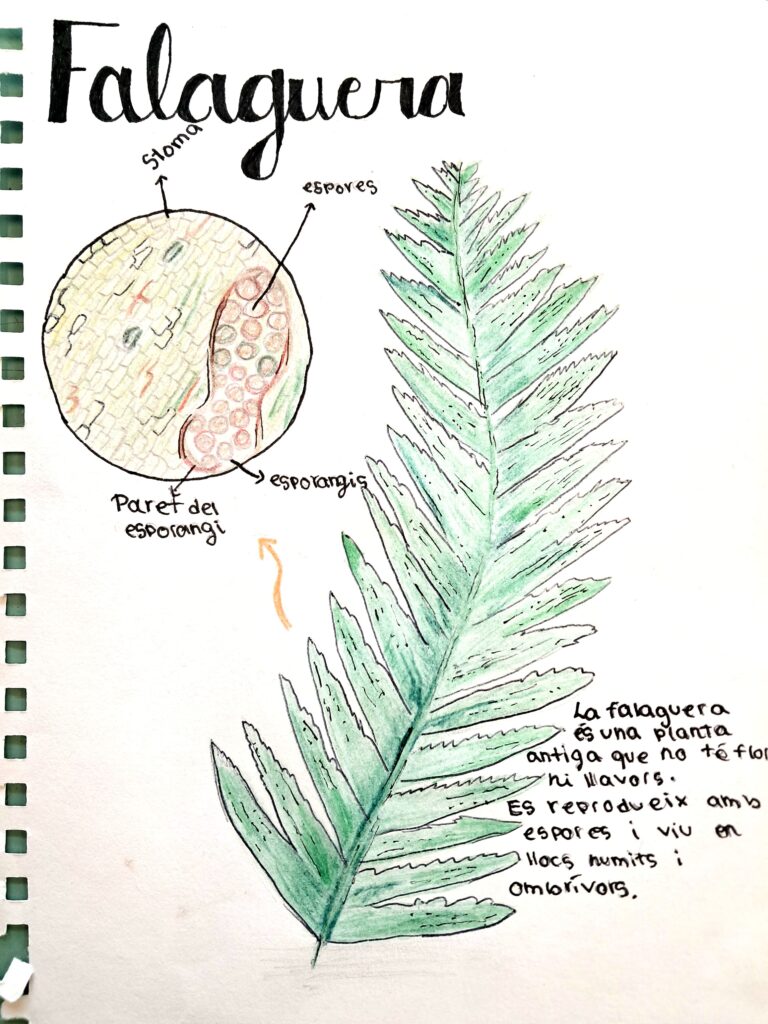 Falaguera
stoma
espores
esporangis
Paret del
esporangi
La falaguera
és una planta
antiga que no té flor
ni llavors.
Es reprodueix amb
espores i viu en
llocs humits i
ombrívors.